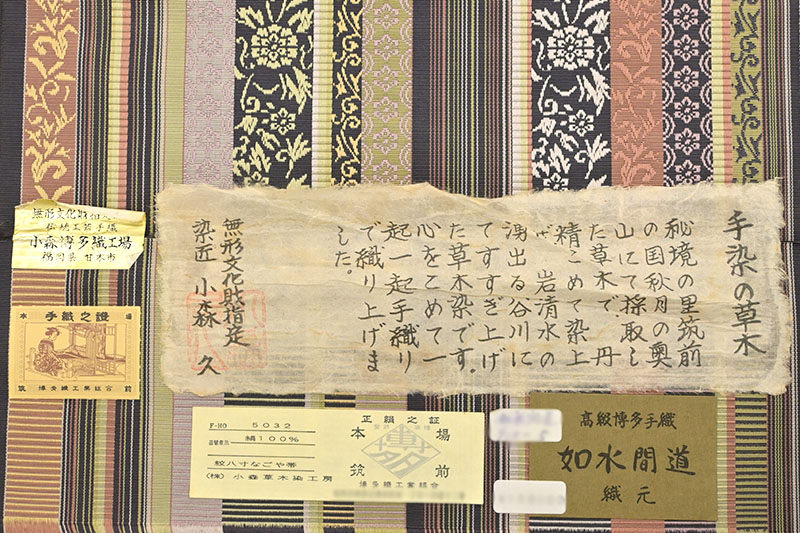 手染の草木
秘境の里筑前
の国秋月の奥
山にて採取し
た草木で丹
精こめて染上
げ、岩清水の
湧出る谷川に
てすすぎ上げ
た草木染です。
心をこめて一
起一起手織り
で織り上げま
した。
無形文化財指定
染匠 小森 久
無形文化財
伝統工芸手織
小森博多織工場
福岡県 甘木市
本 手織之證 場
筑 博多織工業組合 前
F-HO 5032
絹100%
紋八寸なごや帯
(株) 小森草木染工房
正絹之証
本場
筑前
博多織工業組合
高級博多手織
如水間道
織元